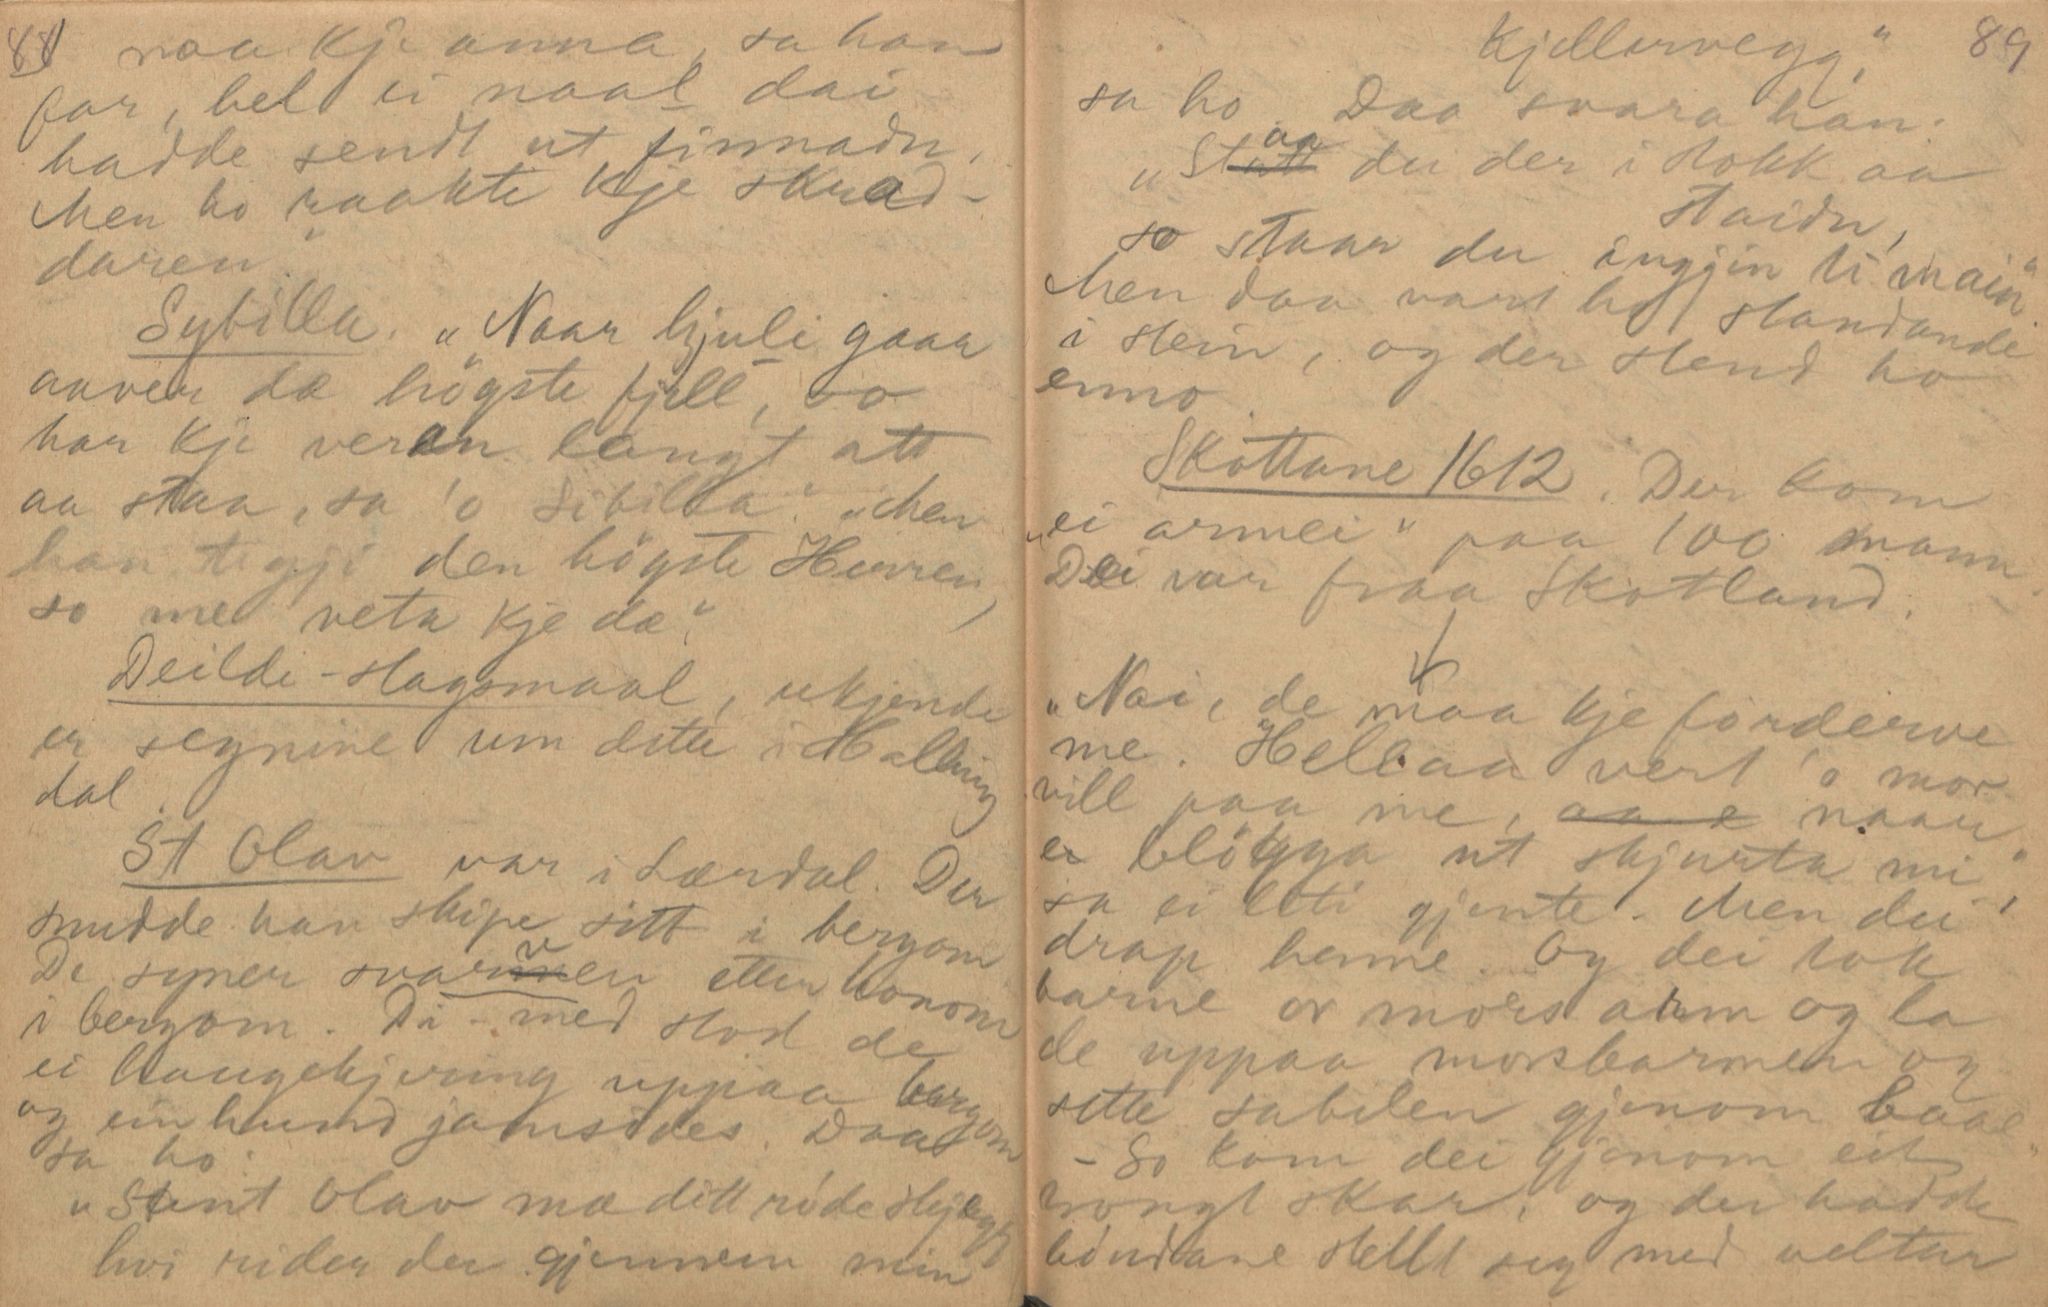 88
naa kje anna, sa han
far, hel ei naal dai
hadde sendt ut finnadn.
Men ho raakte kje skrad-
daren."
Sybilla. "Naar hjuli gaar
aaver dæ högste fjell, so
har kje veræn langt att
aa staa, sa 'o Sibilla." "Men
han tigji den högste Herren,
so me veta kje dæ."
Deilde-slagsmaal, ukjende
er segnine um dette i Halling
dal.
St Olav var i Lærdal. Der
snudde han skipe sitt i bergom
De syner svarven etter honom
i bergom. Di-med stod de
ei haugekjering uppaa bergom
og ein hund jamsides. Daa
sa ho:
"Sant Olav mæ ditt röde skjegg
hvi rider du gjennom min
89
Kjellervegg,"
sa ho. Daa svara han:
"Staa du der i stokk aa
staidn,
so staar du ingjin ti main"
Men daa vart ho standande
i stein, og der stend ho
enno.
Skottane 1612. Der kom
"ei armei" paa 100 mann.
Dei var fraa Skotland.
"Nai, de maa kje forderve
me. Hellaa vert 'o mor
vill paa me, naar
e blögga ut skjurta mi",
sa ei liti gjente. Men dei
drap henne. Og dei tok
barne or mors arm og la
de uppaa morsbarmen og
sette sabelen gjenom baae"
- So kom dei gjenom eit
trongt skar, og der hadde
böndane stellt seg med veltur